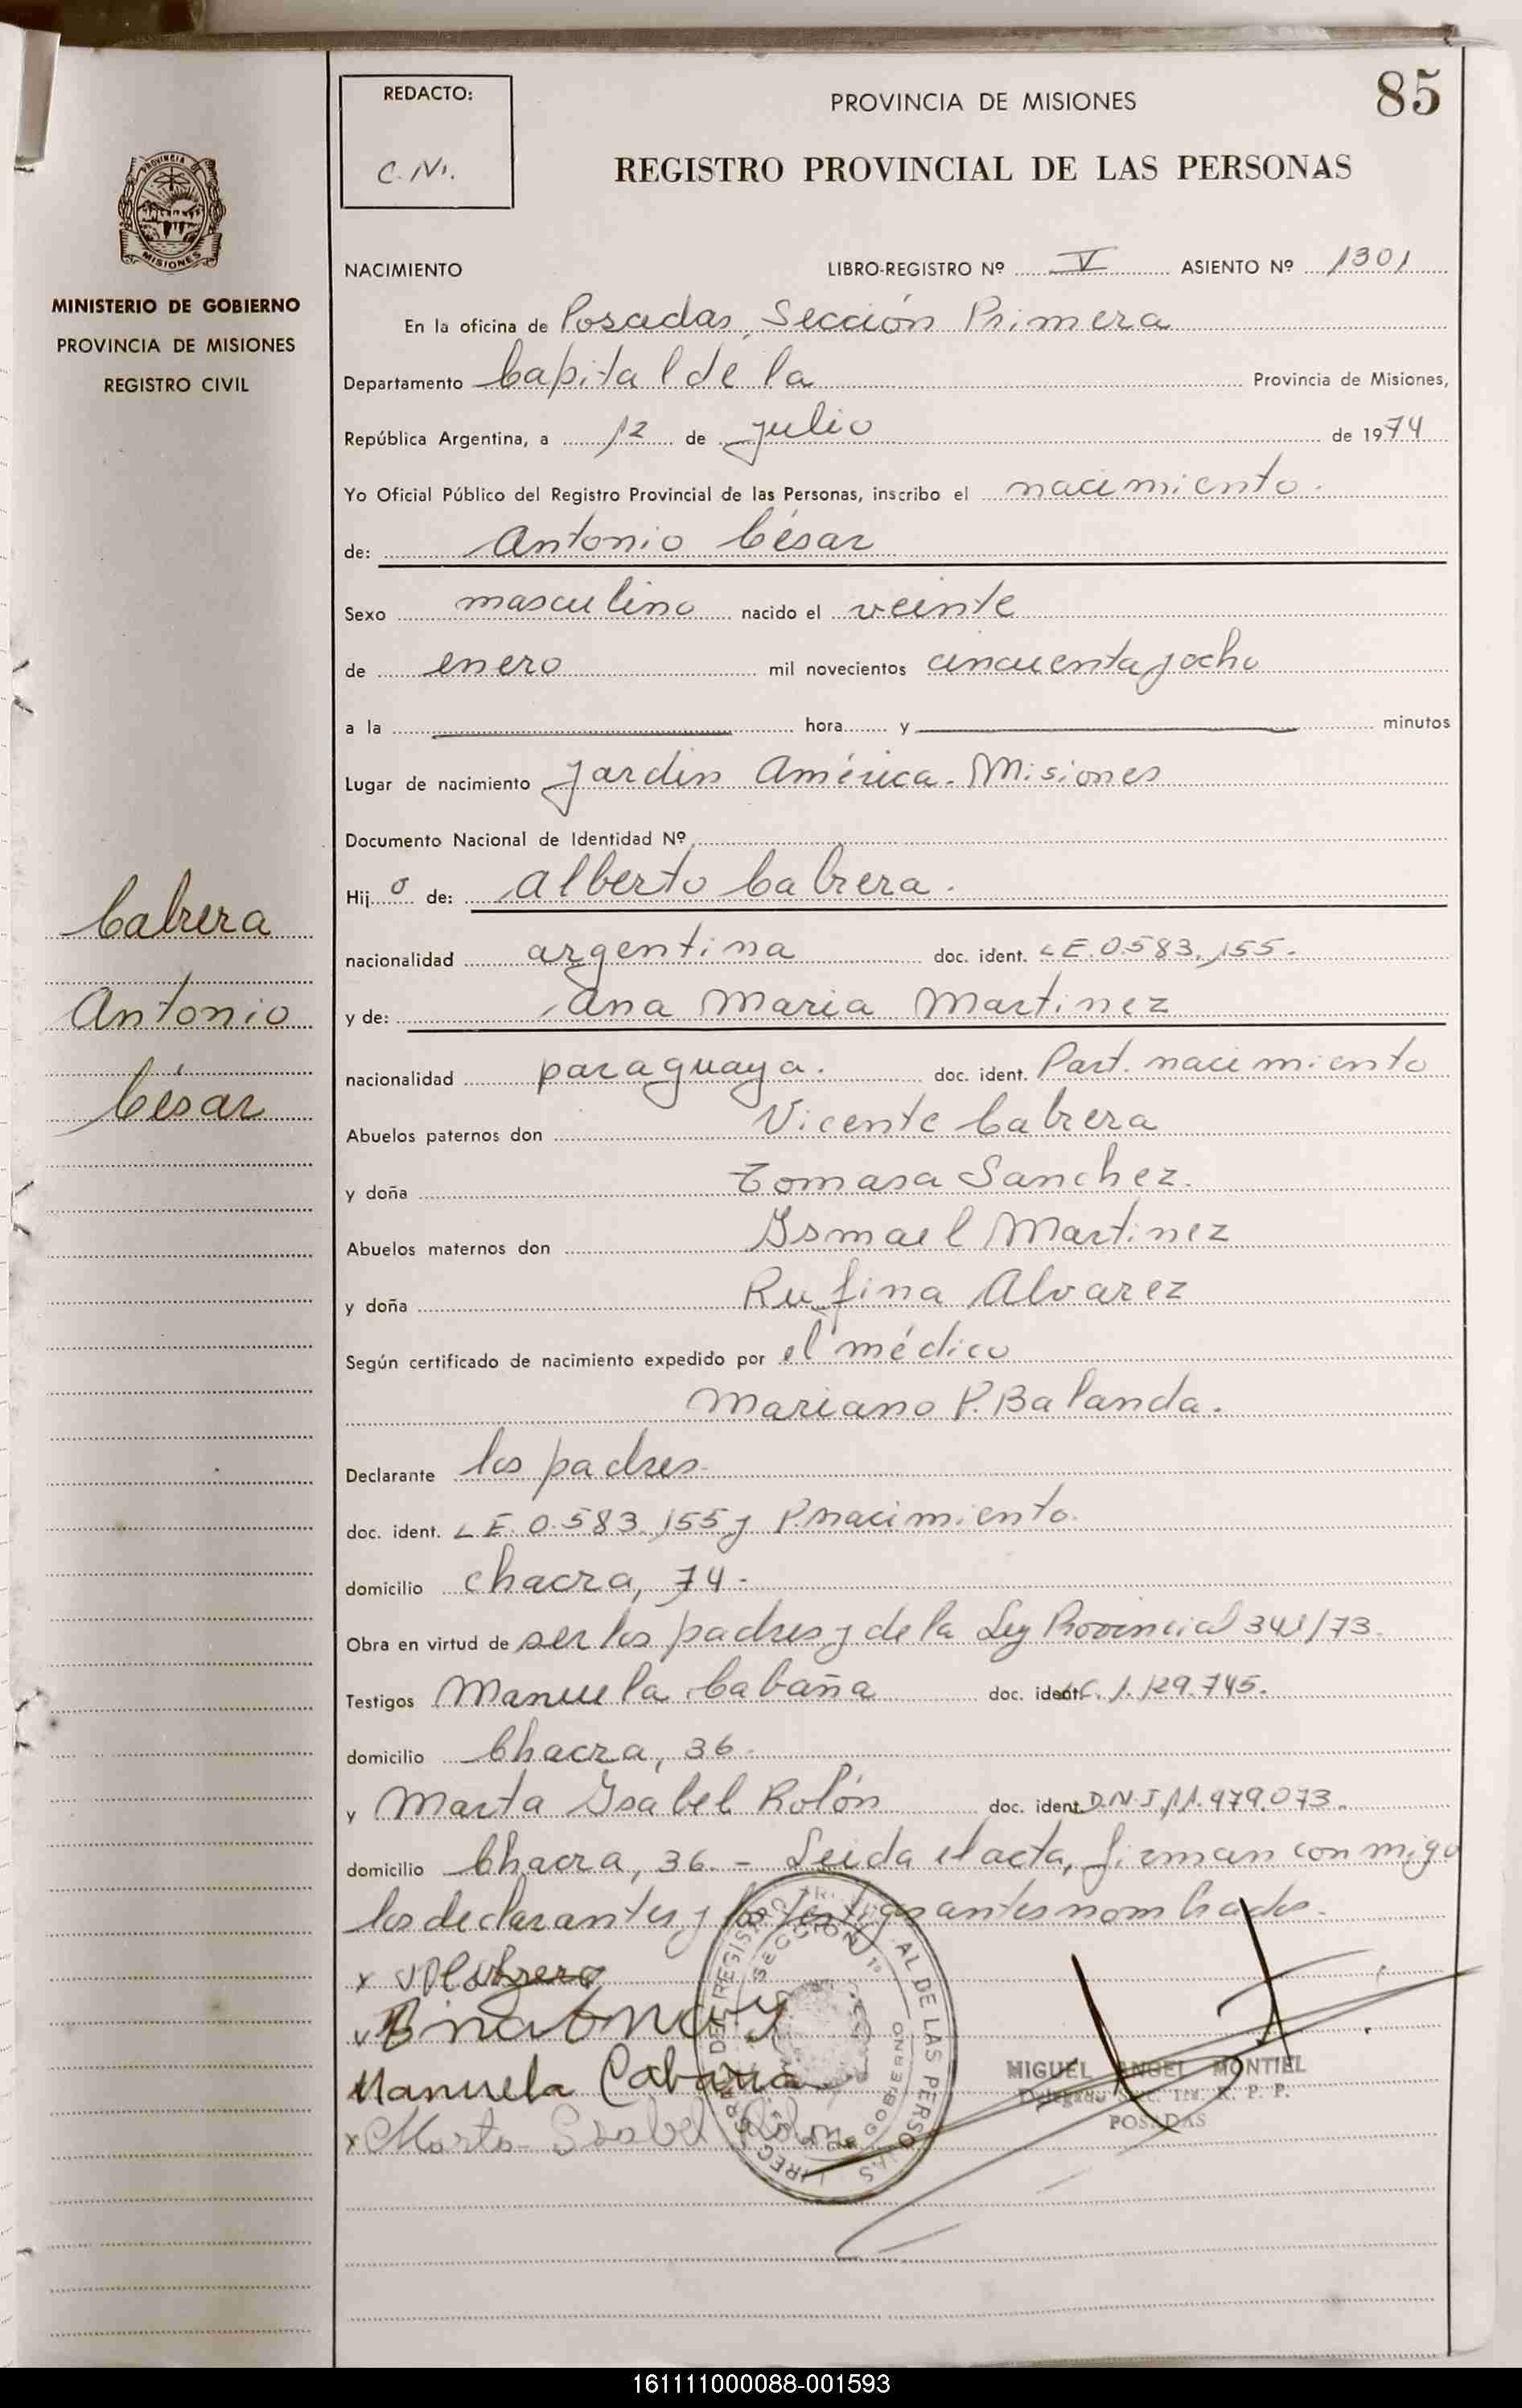 85
REDACTO:
C. N.
PROVINCIA DE MISIONES
REGISTRO PROVINCIAL DE LAS PERSONAS
PROVINCIA DE
MISIONES
MINISTERIO DE GOBIERNO
PROVINCIA DE MISIONES
REGISTRO CIVIL
Cabrera
Antonio
César
NACIMIENTO LIBRO-REGISTRO Nº V ASIENTO Nº 1301
En la oficina de Posadas, Sección Primera
Departamento Capital de la Provincia de Misiones,
República Argentina, a 12 de julio de 1974
Yo Oficial Público del Registro Provincial de las Personas, inscribo el nacimiento.
de: Antonio César
Sexo masculino nacido el veinte
de enero mil novecientos cincuenta y ocho
a la hora y minutos
Lugar de nacimiento Jardin América. Misiones
Documento Nacional de Identidad Nº
Hijo de: Alberto Cabrera.
nacionalidad argentina doc. ident. LE. 0.583.155.
y de: Ana Maria Martinez
nacionalidad paraguaya. doc. ident. Part. nacimiento
Abuelos paternos don Vicente Cabrera
y doña Tomasa Sanchez.
Abuelos maternos don Ismael Martinez
y doña Rufina Alvarez
Según certificado de nacimiento expedido por el médico
Mariano P. Balanda.
Declarante los padres.
doc. ident. LE. 0.583.155 y P. nacimiento.
domicilio chacra, 74.
Obra en virtud de ser los padres y de la Ley Provincial 341/73.
Testigos Manuela Cabaña doc. ident. LC. 1.129.745.
domicilio Chacra, 36.
y Marta Isabel Rolón doc. ident. D.N.I. 11.979.073.
domicilio Chacra, 36. - Leida el acta, firman conmigo
los declarantes y los testigos antes nombrados.
x Cabrera
Manuela Cabaña
x Marta Isabel Rolon
SECCION 1º
GOBIERNO
MIGUEL ANGEL MONTIEL
Delegado Secc. 1ra. R. P. P.
POSADAS
161111000088-001593